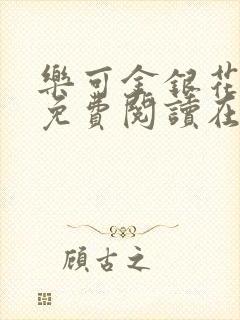 樂可金銀花
免費閱讀在
顧古之